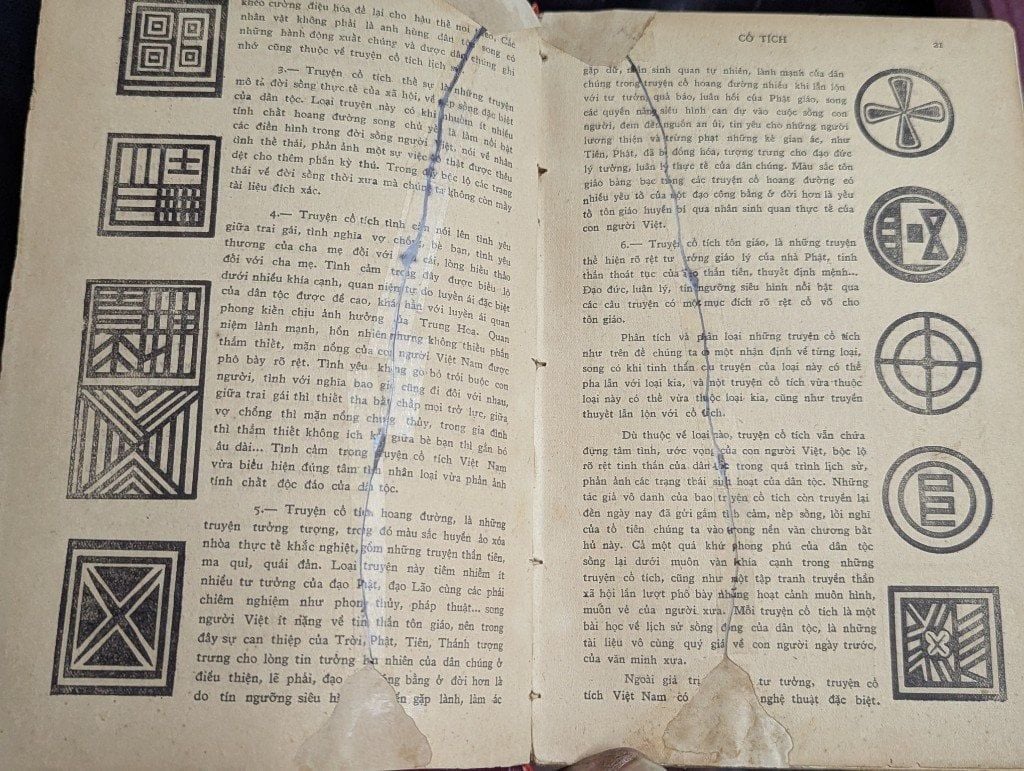 khéo cường điệu hóa để lại cho hậu thế noi Các
nhân vật không phải là anh hùng dân tộc song có
những hành động xuất chúng và được dân chúng ghi
nhớ cũng thuộc về truyện cổ tích lịch sử.
3.— Truyện cổ tích thế sự là những truyện
mô tả đời sống thực tế của xã hội, về nếp sống đặc biệt
của dân tộc. Loại truyện này có khi nhuốm ít nhiều
tính chất hoang đường song chủ yếu là làm nổi bật
các điển hình trong đời sống người Việt, nói về nhân
tình thế thái, phản ảnh một sự việc có thật được thêu
dệt cho thêm phần kỳ thú. Trong đây bộc lộ các trạng
thái về đời sống thời xưa mà chúng ta không còn mấy
tài liệu đích xác.
4.— Truyện cổ tích tình cảm nói lên tình yêu
giữa trai gái, tình nghĩa vợ chồng, bè bạn, tình yêu
thương của cha mẹ đối với con cái, lòng hiếu thảo
đối với cha mẹ. Tình cảm trong đây được biểu lộ
dưới nhiều khía cạnh, quan niệm tự do luyến ái đặc biệt
của dân tộc được đề cao, khác hẳn với luyến ái quan
phong kiến chịu ảnh hưởng của Trung Hoa. Quan
niệm lành mạnh, hồn nhiên nhưng không thiếu phần
thắm thiết, mặn nồng của con người Việt Nam được
phô bày rõ rệt. Tình yêu không gò bó trói buộc con
người, tình với nghĩa bao giờ cũng đi đôi với nhau,
giữa trai gái thì thiết tha bất chấp mọi trở lực, giữa
vợ chồng thì mặn nồng chung thủy, trong gia đình
thì thắm thiết không ích kỷ, giữa bè bạn thì gắn bó
lâu dài... Tình cảm trong truyện cổ tích Việt Nam
vừa biểu hiện đúng tâm tình nhân loại vừa phản ảnh
tính chất độc đáo của dân tộc.
5.— Truyện cổ tích hoang đường, là những
truyện tưởng tượng, trong đó màu sắc huyền ảo xóa
nhòa thực tế khắc nghiệt, gồm những truyện thần tiên,
ma quỉ, quái đản. Loại truyện này tiêm nhiễm ít
nhiều tư tưởng của đạo Phật, đạo Lão cùng các phái
chiêm nghiệm như phong thủy, pháp thuật... song
người Việt ít nặng về tinh thần tôn giáo, nên trong
đây sự can thiệp của Trời, Phật, Tiên, Thánh tượng
trưng cho lòng tin tưởng hồn nhiên của dân chúng ở
điều thiện, lẽ phải, đạo công bằng ở đời hơn là
do tín ngưỡng siêu gặp lành, làm ác
CỔ TÍCH
21
gặp dữ, nhân sinh quan tự nhiên, lành mạnh của dân
chúng trong truyện cổ hoang đường nhiều khi lẫn lộn
với tư tưởng quả báo, luân hồi của Phật giáo, song
các quyền năng siêu hình can dự vào cuộc sống con
người, đem đến nguồn an ủi, tin yêu cho những người
lương thiện và trừng phạt những kẻ gian ác, như
Tiên, Phật, đã bị đồng hóa, tượng trưng cho đạo đức
lý tưởng, luân lý thực tế của dân chúng. Màu sắc tôn
giáo bàng bạc trong các truyện cổ hoang đường có
nhiều yếu tố của một đạo công bằng ở đời hơn là yếu
tố tôn giáo huyền bí qua nhân sinh quan thực tế của
con người Việt.
6.— Truyện cổ tích tôn giáo, là những truyện
thể hiện rõ rệt tư tưởng giáo lý của nhà Phật, tinh
thần thoát tục của đạo thần tiên, thuyết định mệnh...
Đạo đức, luân lý, tín ngưỡng siêu hình nổi bật qua
các câu truyện có một mục đích rõ rệt cổ võ cho
tôn giáo.
Phân tích và phân loại những truyện cổ tích
như trên để chúng ta có một nhận định về từng loại,
song có khi tinh thần câu truyện của loại này có thể
pha lẫn với loại kia, và một truyện cổ tích vừa thuộc
loại này có thể vừa thuộc loại kia, cũng như truyền
thuyết lẫn lộn với cổ tích.
Dù thuộc về loại nào, truyện cổ tích vẫn chứa
đựng tâm tình, ước vọng của con người Việt, bộc lộ
rõ rệt tinh thần của dân tộc trong quá trình lịch sử,
phản ảnh các trạng thái sinh hoạt của dân tộc. Những
tác giả vô danh của bao truyện cổ tích còn truyền lại
đến ngày nay đã gửi gấm tình cảm, nếp sống, lối nghĩ
của tổ tiên chúng ta vào trong nền văn chương bất
hủ này. Cả một quá khứ phong phú của dân tộc
sống lại dưới muôn vàn khía cạnh trong những
truyện cổ tích, cũng như một tập tranh truyền thần
xã hội lần lượt phô bày những hoạt cảnh muôn hình,
muôn vẻ của người xưa. Mỗi truyện cổ tích là một
bài học về lịch sử sống động của dân tộc, là những
tài liệu vô cùng quý giá về con người ngày trước,
của văn minh xưa.
Ngoài giá trị tư tưởng, truyện cổ
tích Việt Nam có nghệ thuật đặc biệt.